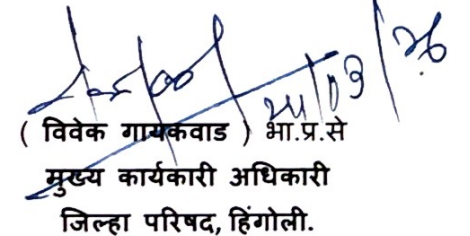 ( विवेक गायकवाड ) भा.प्र.से
मुख्य कार्यकारी अधिकारी
जिल्हा परिषद, हिंगोली.